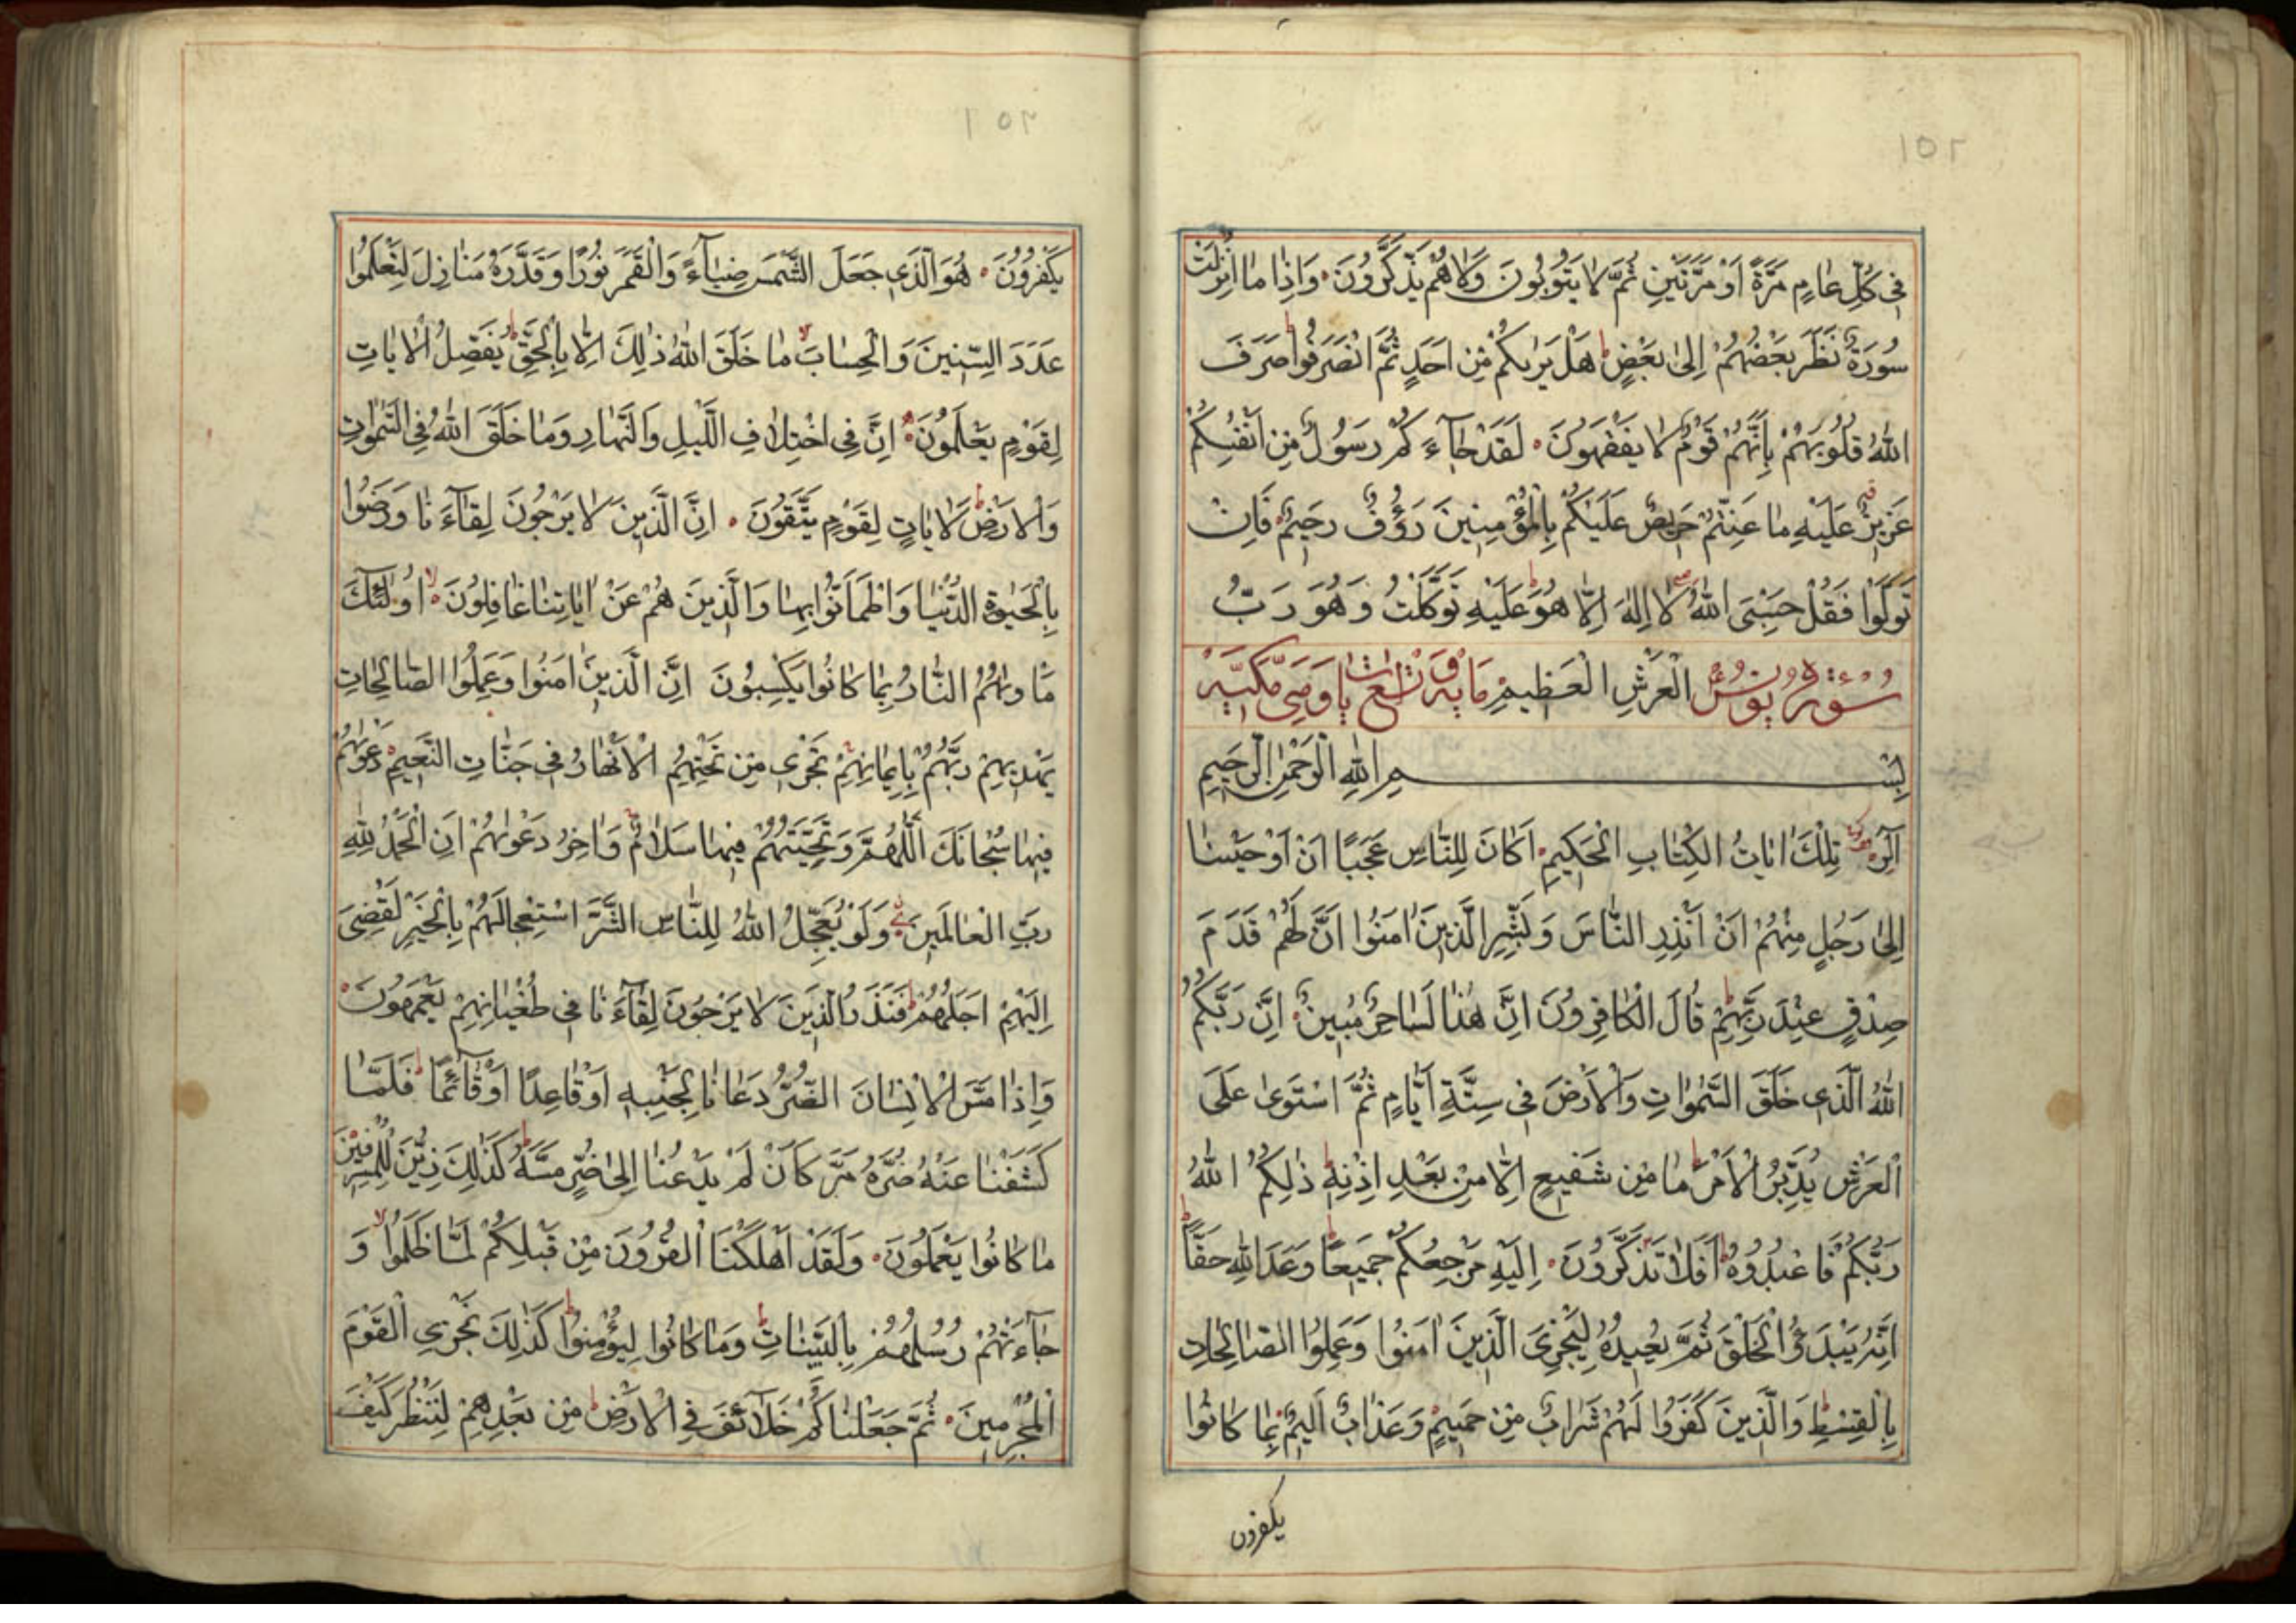 ١٥٢
فِى كُلِّ عَامٍ مَرَّةً اَوْ مَرَّتَيْنِ ثُمَّ لَا يَتُوبُونَ وَلَا هُمْ يَذَّكَّرُونَ وَاِذَا مَا اُنْزِلَتْ
سُورَةٌ نَظَرَ بَعْضُهُمْ اِلٰى بَعْضٍ هَلْ يَرٰيكُمْ مِنْ اَحَدٍ ثُمَّ انْصَرَفُوا صَرَفَ
اللّٰهُ قُلُوبَهُمْ بِاَنَّهُمْ قَوْمٌ لَا يَفْقَهُونَ لَقَدْ جَآءَكُمْ رَسُولٌ مِنْ اَنْفُسِكُمْ
عَزِيزٌ عَلَيْهِ مَا عَنِتُّمْ حَرِيصٌ عَلَيْكُمْ بِالْمُؤْمِنِينَ رَؤُفٌ رَحِيمٌ فَاِنْ
تَوَلَّوْا فَقُلْ حَسْبِىَ اللّٰهُ لَا اِلٰهَ اِلَّا هُوَ عَلَيْهِ تَوَكَّلْتُ وَهُوَ رَبُّ
سُورَةُ يُونُسَ الْعَرْشِ الْعَظِيمِ مَايَةٌ وَتِسْعُ اٰيَاتٍ وَهِىَ مَكِّيَّةٌ
بِسْمِ اللّٰهِ الرَّحْمٰنِ الرَّحِيمِ
الٓرٰ تِلْكَ اٰيَاتُ الْكِتَابِ الْحَكِيمِ اَكَانَ لِلنَّاسِ عَجَبًا اَنْ اَوْحَيْنَا
اِلٰى رَجُلٍ مِنْهُمْ اَنْ اَنْذِرِ النَّاسَ وَبَشِّرِ الَّذِينَ اٰمَنُوا اَنَّ لَهُمْ قَدَمَ
صِدْقٍ عِنْدَ رَبِّهِمْ قَالَ الْكَافِرُونَ اِنَّ هٰذَا لَسَاحِرٌ مُبِينٌ اِنَّ رَبَّكُمُ
اللّٰهُ الَّذِى خَلَقَ السَّمٰوَاتِ وَالْاَرْضَ فِى سِتَّةِ اَيَّامٍ ثُمَّ اسْتَوٰى عَلَى
الْعَرْشِ يُدَبِّرُ الْاَمْرَ مَا مِنْ شَفِيعٍ اِلَّا مِنْ بَعْدِ اِذْنِهِ ذٰلِكُمُ اللّٰهُ
رَبُّكُمْ فَاعْبُدُوهُ اَفَلَا تَذَكَّرُونَ اِلَيْهِ مَرْجِعُكُمْ جَمِيعًا وَعْدَ اللّٰهِ حَقًّا
اِنَّهُ يَبْدَؤُا الْخَلْقَ ثُمَّ يُعِيدُهُ لِيَجْزِىَ الَّذِينَ اٰمَنُوا وَعَمِلُوا الصَّالِحَاتِ
بِالْقِسْطِ وَالَّذِينَ كَفَرُوا لَهُمْ شَرَابٌ مِنْ حَمِيمٍ وَعَذَابٌ اَلِيمٌ بِمَا كَانُوا
يكفرون
١٥٢
يَكْفُرُونَ هُوَ الَّذِى جَعَلَ الشَّمْسَ ضِيَآءً وَالْقَمَرَ نُورًا وَقَدَّرَهُ مَنَازِلَ لِتَعْلَمُوا
عَدَدَ السِّنِينَ وَالْحِسَابَ مَا خَلَقَ اللّٰهُ ذٰلِكَ اِلَّا بِالْحَقِّ يُفَصِّلُ الْاٰيَاتِ
لِقَوْمٍ يَعْلَمُونَ اِنَّ فِى اخْتِلَافِ اللَّيْلِ وَالنَّهَارِ وَمَا خَلَقَ اللّٰهُ فِى السَّمٰوَاتِ
وَالْاَرْضِ لَاٰيَاتٍ لِقَوْمٍ يَتَّقُونَ اِنَّ الَّذِينَ لَا يَرْجُونَ لِقَآءَنَا وَرَضُوا
بِالْحَيٰوةِ الدُّنْيَا وَاطْمَاَنُّوا بِهَا وَالَّذِينَ هُمْ عَنْ اٰيَاتِنَا غَافِلُونَ اُولٰٓئِكَ
مَاْوٰيهُمُ النَّارُ بِمَا كَانُوا يَكْسِبُونَ اِنَّ الَّذِينَ اٰمَنُوا وَعَمِلُوا الصَّالِحَاتِ
يَهْدِيهِمْ رَبُّهُمْ بِاِيمَانِهِمْ تَجْرِى مِنْ تَحْتِهِمُ الْاَنْهَارُ فِى جَنَّاتِ النَّعِيمِ دَعْوٰيهُمْ
فِيهَا سُبْحَانَكَ اللّٰهُمَّ وَتَحِيَّتُهُمْ فِيهَا سَلَامٌ وَاٰخِرُ دَعْوٰيهُمْ اَنِ الْحَمْدُ لِلّٰهِ
رَبِّ الْعَالَمِينَ وَلَوْ يُعَجِّلُ اللّٰهُ لِلنَّاسِ الشَّرَّ اسْتِعْجَالَهُمْ بِالْخَيْرِ لَقُضِىَ
اِلَيْهِمْ اَجَلُهُمْ فَنَذَرُ الَّذِينَ لَا يَرْجُونَ لِقَآءَنَا فِى طُغْيَانِهِمْ يَعْمَهُونَ
وَاِذَا مَسَّ الْاِنْسَانَ الضُّرُّ دَعَانَا لِجَنْبِهِ اَوْ قَاعِدًا اَوْ قَآئِمًا فَلَمَّا
كَشَفْنَا عَنْهُ ضُرَّهُ مَرَّ كَاَنْ لَمْ يَدْعُنَا اِلٰى ضُرٍّ مَسَّهُ كَذٰلِكَ زُيِّنَ لِلْمُسْرِفِينَ
مَا كَانُوا يَعْمَلُونَ وَلَقَدْ اَهْلَكْنَا الْقُرُونَ مِنْ قَبْلِكُمْ لَمَّا ظَلَمُوا وَ
جَآءَتْهُمْ رُسُلُهُمْ بِالْبَيِّنَاتِ وَمَا كَانُوا لِيُؤْمِنُوا كَذٰلِكَ نَجْزِى الْقَوْمَ
الْمُجْرِمِينَ ثُمَّ جَعَلْنَاكُمْ خَلَآئِفَ فِى الْاَرْضِ مِنْ بَعْدِهِمْ لِنَنْظُرَ كَيْفَ